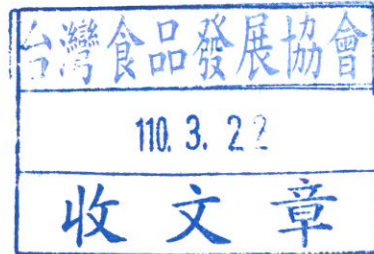 台灣食品發展協會
110. 3. 22
收文章